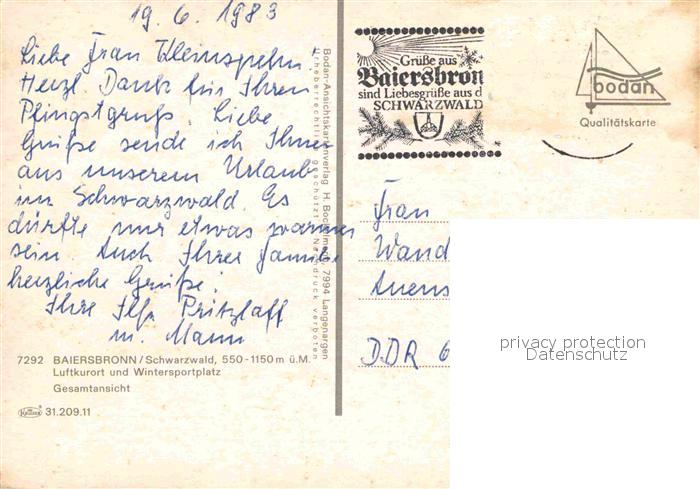 19. 6. 1983
Liebe Frau Kleinspehn,
Herzl. Dank für Ihren
Pfingstgruß. Liebe
Grüße sende ich Ihnen
aus unserem Urlaub
im Schwarzwald. Es
dürfte nur etwas wärmer
sein. Auch Ihrer Familie
herzliche Grüße!
Ihre Ilse Pritzlaff
m. Mann
7292 BAIERSBRONN/Schwarzwald, 550-1150 m ü.M.
Luftkurort und Wintersportplatz
Gesamtansicht
Krüger 31.209.11
Bodan-Ansichtskartenverlag H. Bockelmann, 7994 Langenargen
Urheberrechtlich geschützt · Nachdruck verboten
Grüße aus
Baiersbron
sind Liebesgrüße aus d
SCHWARZWALD
bodan
Qualitätskarte
Frau
Wand
Auens
DDR 6
privacy protection
Datenschutz